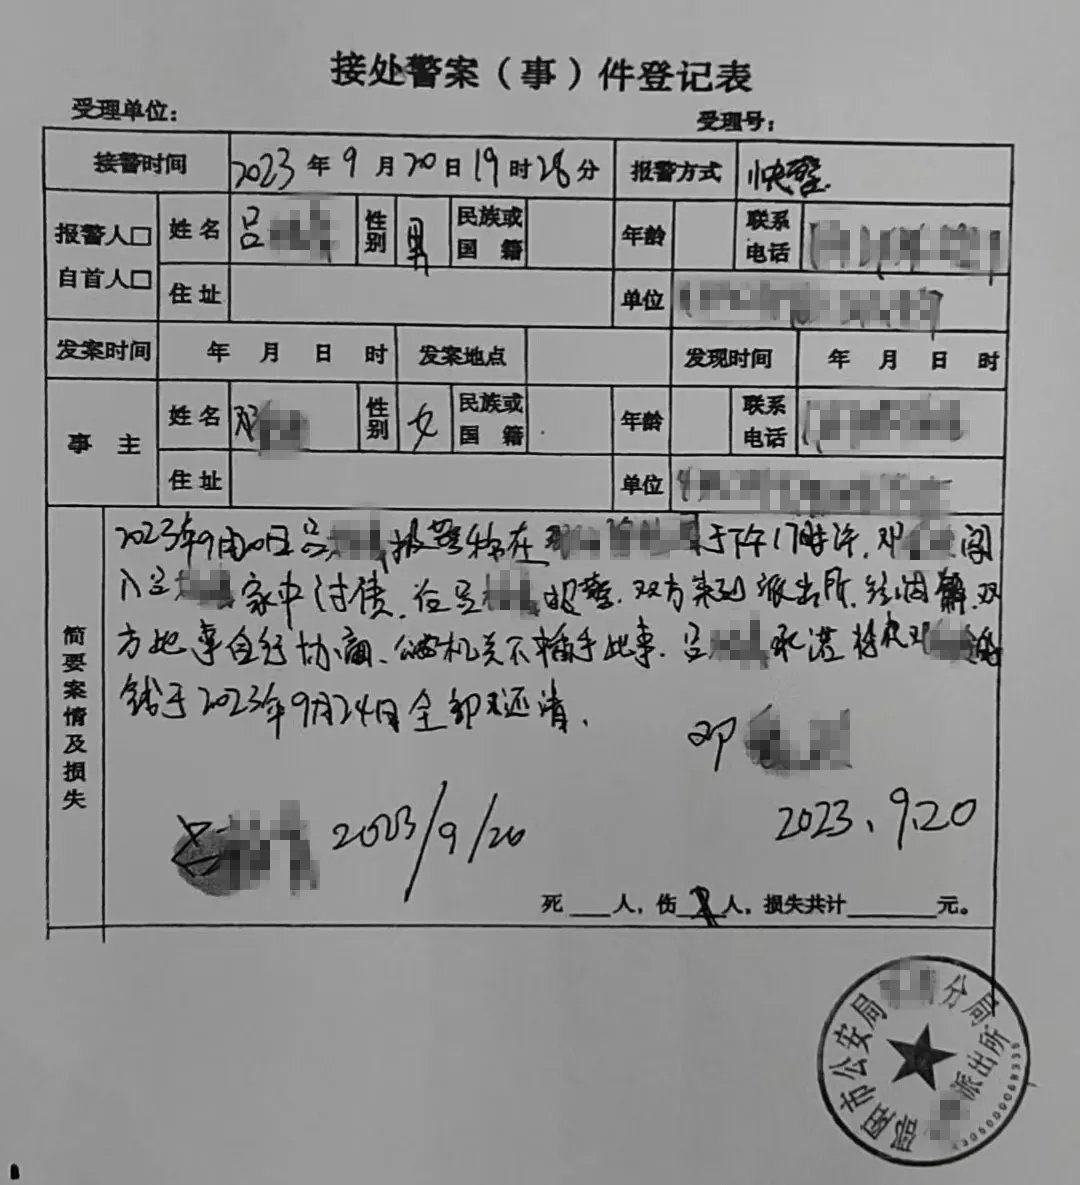 接处警案（事）件登记表
受理单位： 受理号：
接警时间 2023年9月20日19时28分 报警方式 快警
报警人□ 自首人□ 姓名 吕 性别 男 民族或国籍 年龄 联系电话
住址 单位
发案时间 年 月 日 时 发案地点 发现时间 年 月 日 时
事主 姓名 邓 性别 女 民族或国籍 年龄 联系电话
住址 单位
简要案情及损失
2023年9月20日吕 报警称在邓 于下午17时许，邓 闯
入吕 家中讨债，在吕 报警，双方来到派出所，经调解，双
方此事自行协商、公安机关不插手此事，吕 承诺将欠邓 的
钱于2023年9月24日全部还清，
邓
吕 2023/9/20
2023、9.20
死 人，伤 人，损失共计 元。
邵阳市公安局 分局 派出所